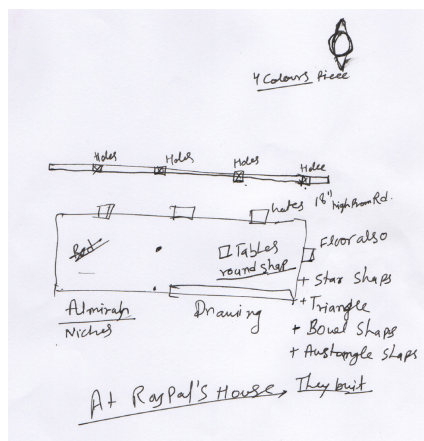 4 Colours Piece
Holes Holes Holes Holes
18" high from Rd.
Bed
Tables
round shap
Floor also
+ Star Shaps
+ Triangle
+ Bowel Shaps
+ Austangle Shaps
Almirah
Niches
Drawing
At Raspal's House, They buit